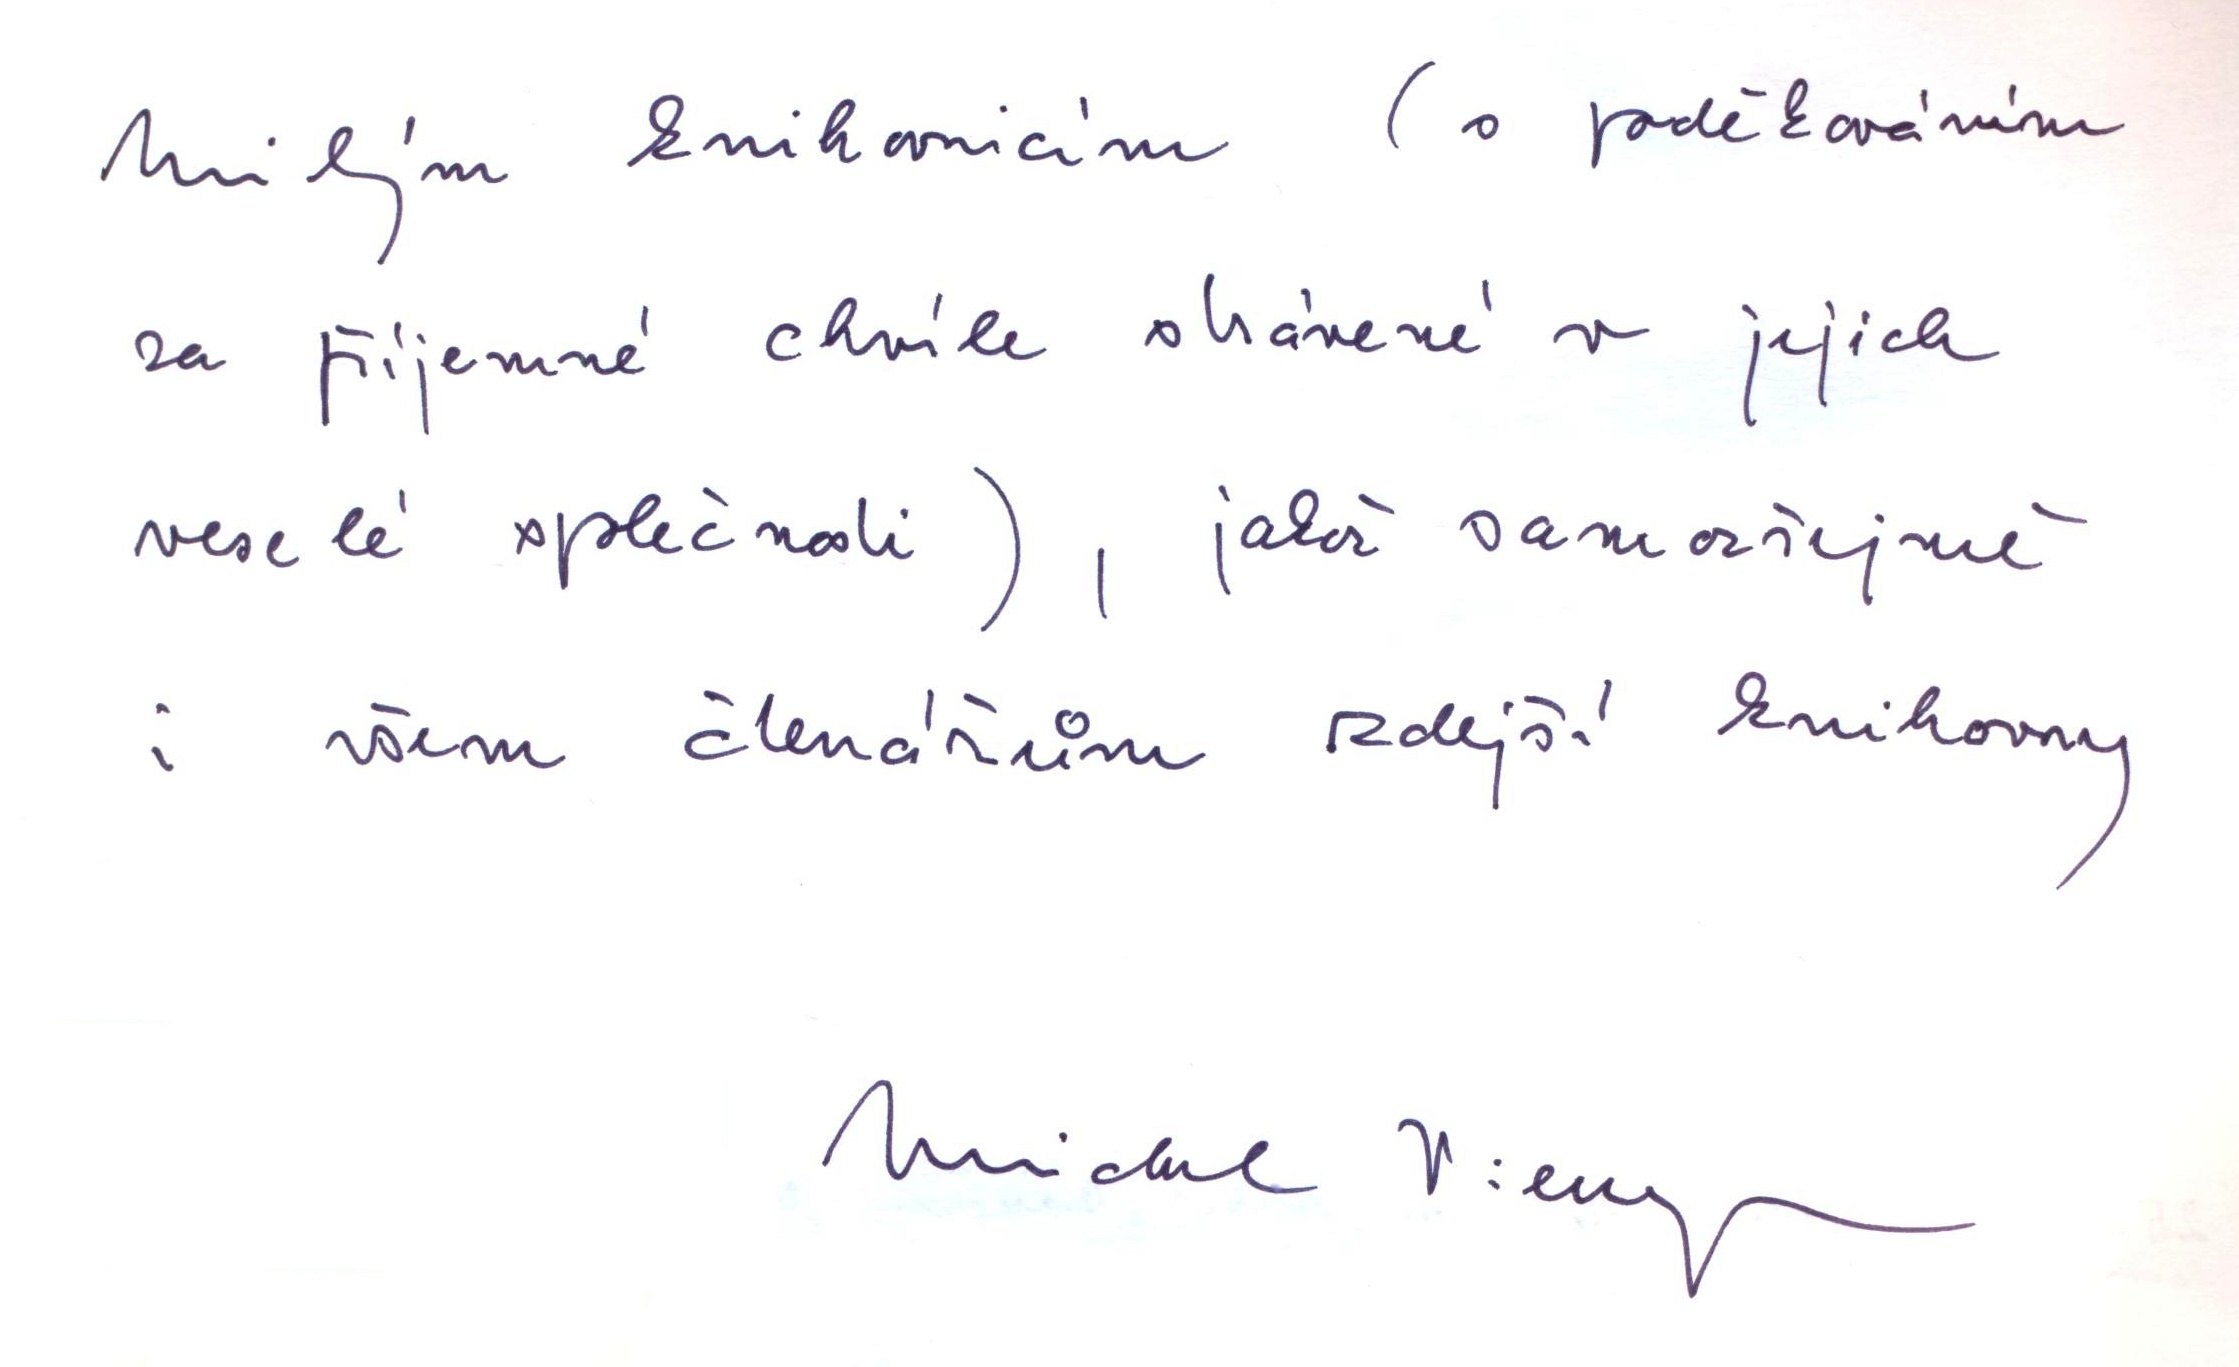 Milým knihovnicím (s poděkováním
za příjemné chvíle strávené v jejich
veselé společnosti), jakož samozřejmě
i všem čtenářům zdejší knihovny
Michal Viewegh